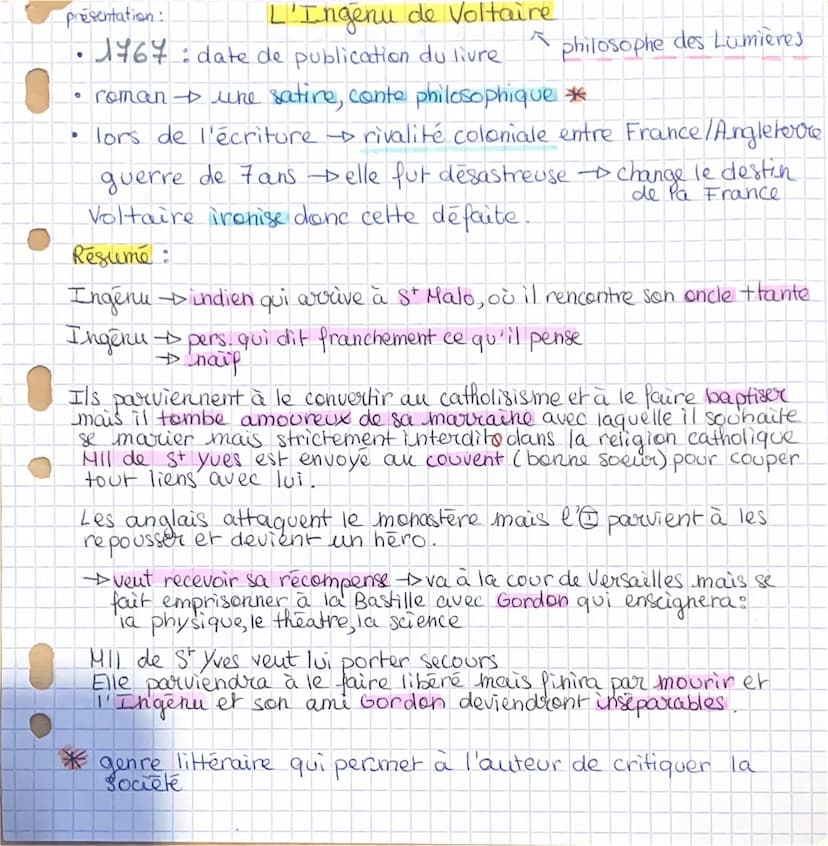 présentation :
L'Ingénu de Voltaire
↖ philosophe des Lumières
• 1767 : date de publication du livre
• roman → une satire, conte philosophique *
• lors de l'écriture → rivalité coloniale entre France/Angleterre
guerre de 7 ans → elle fut désastreuse → change le destin
de la France
Voltaire ironise donc cette défaite.
Résumé :
Ingénu → indien qui arrive à St Malo, où il rencontre son oncle + tante
Ingénu → pers. qui dit franchement ce qu'il pense
→ naïf
Ils parviennent à le convertir au catholisisme et à le faire baptiser
mais il tombe amoureux de sa marraine avec laquelle il souhaite
se marier mais strictement interdit dans la religion catholique
Mll de St Yves est envoyé au couvent (bonne soeur) pour couper
tour liens avec lui.
Les anglais attaquent le monastère mais l'Ⓘ parvient à les
repousser et devient un héro.
→ veut recevoir sa récompense → va à la cour de Versailles mais se
fait emprisonner à la Bastille avec Gordon qui enseignera :
la physique, le théatre, la science
Mll de St Yves veut lui porter secours
Elle parviendra à le faire libéré mais finira par mourir et
l'Ingénu et son ami Gordon deviendront inséparables.
* genre littéraire qui permet à l'auteur de critiquer la
société